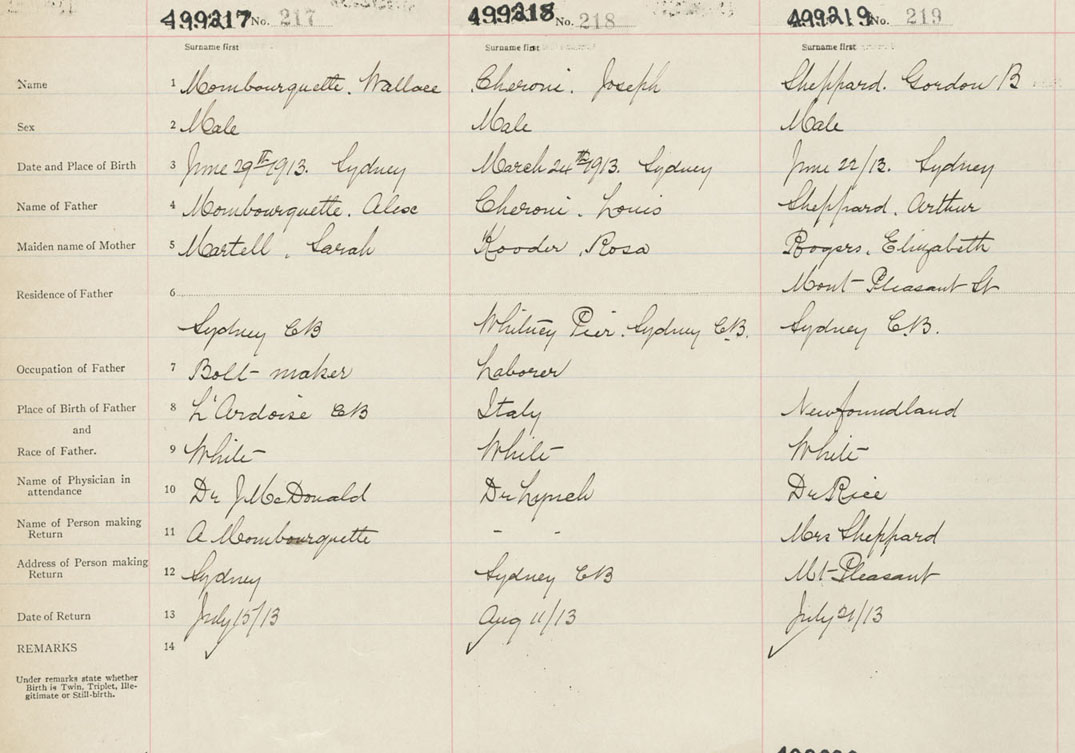 499217 No. 217 499218 No. 218 499219 No. 219
Surname first Surname first Surname first
Name 1 Mombourquette. Wallace Cheroni. Joseph Sheppard. Gordon B
Sex 2 Male Male Male
Date and Place of Birth 3 June 29th 1913. Sydney March 24th 1913. Sydney June 22/13. Sydney
Name of Father 4 Mombourquette. Alex Cheroni. Louis Sheppard. Arthur
Maiden name of Mother 5 Martell, Sarah Kooder, Rosa Rogers. Elizabeth
Mont-Pleasant St
Residence of Father 6
Sydney CB Whitney Pier. Sydney C.B. Sydney C.B.
Occupation of Father 7 Bolt-maker Laborer
Place of Birth of Father 8 L'Ardoise CB Italy Newfoundland
and
Race of Father. 9 White White White
Name of Physician in
attendance 10 Dr J McDonald Dr Lynch Dr Rice
Name of Person making
Return 11 A Mombourquette - - Mrs Sheppard
Address of Person making
Return 12 Sydney Sydney CB Mt-Pleasant
Date of Return 13 July 15/13 Aug 11/13 July 21/13
REMARKS 14
Under remarks state whether
Birth is Twin, Triplet, Ille-
gitimate or Still-birth.